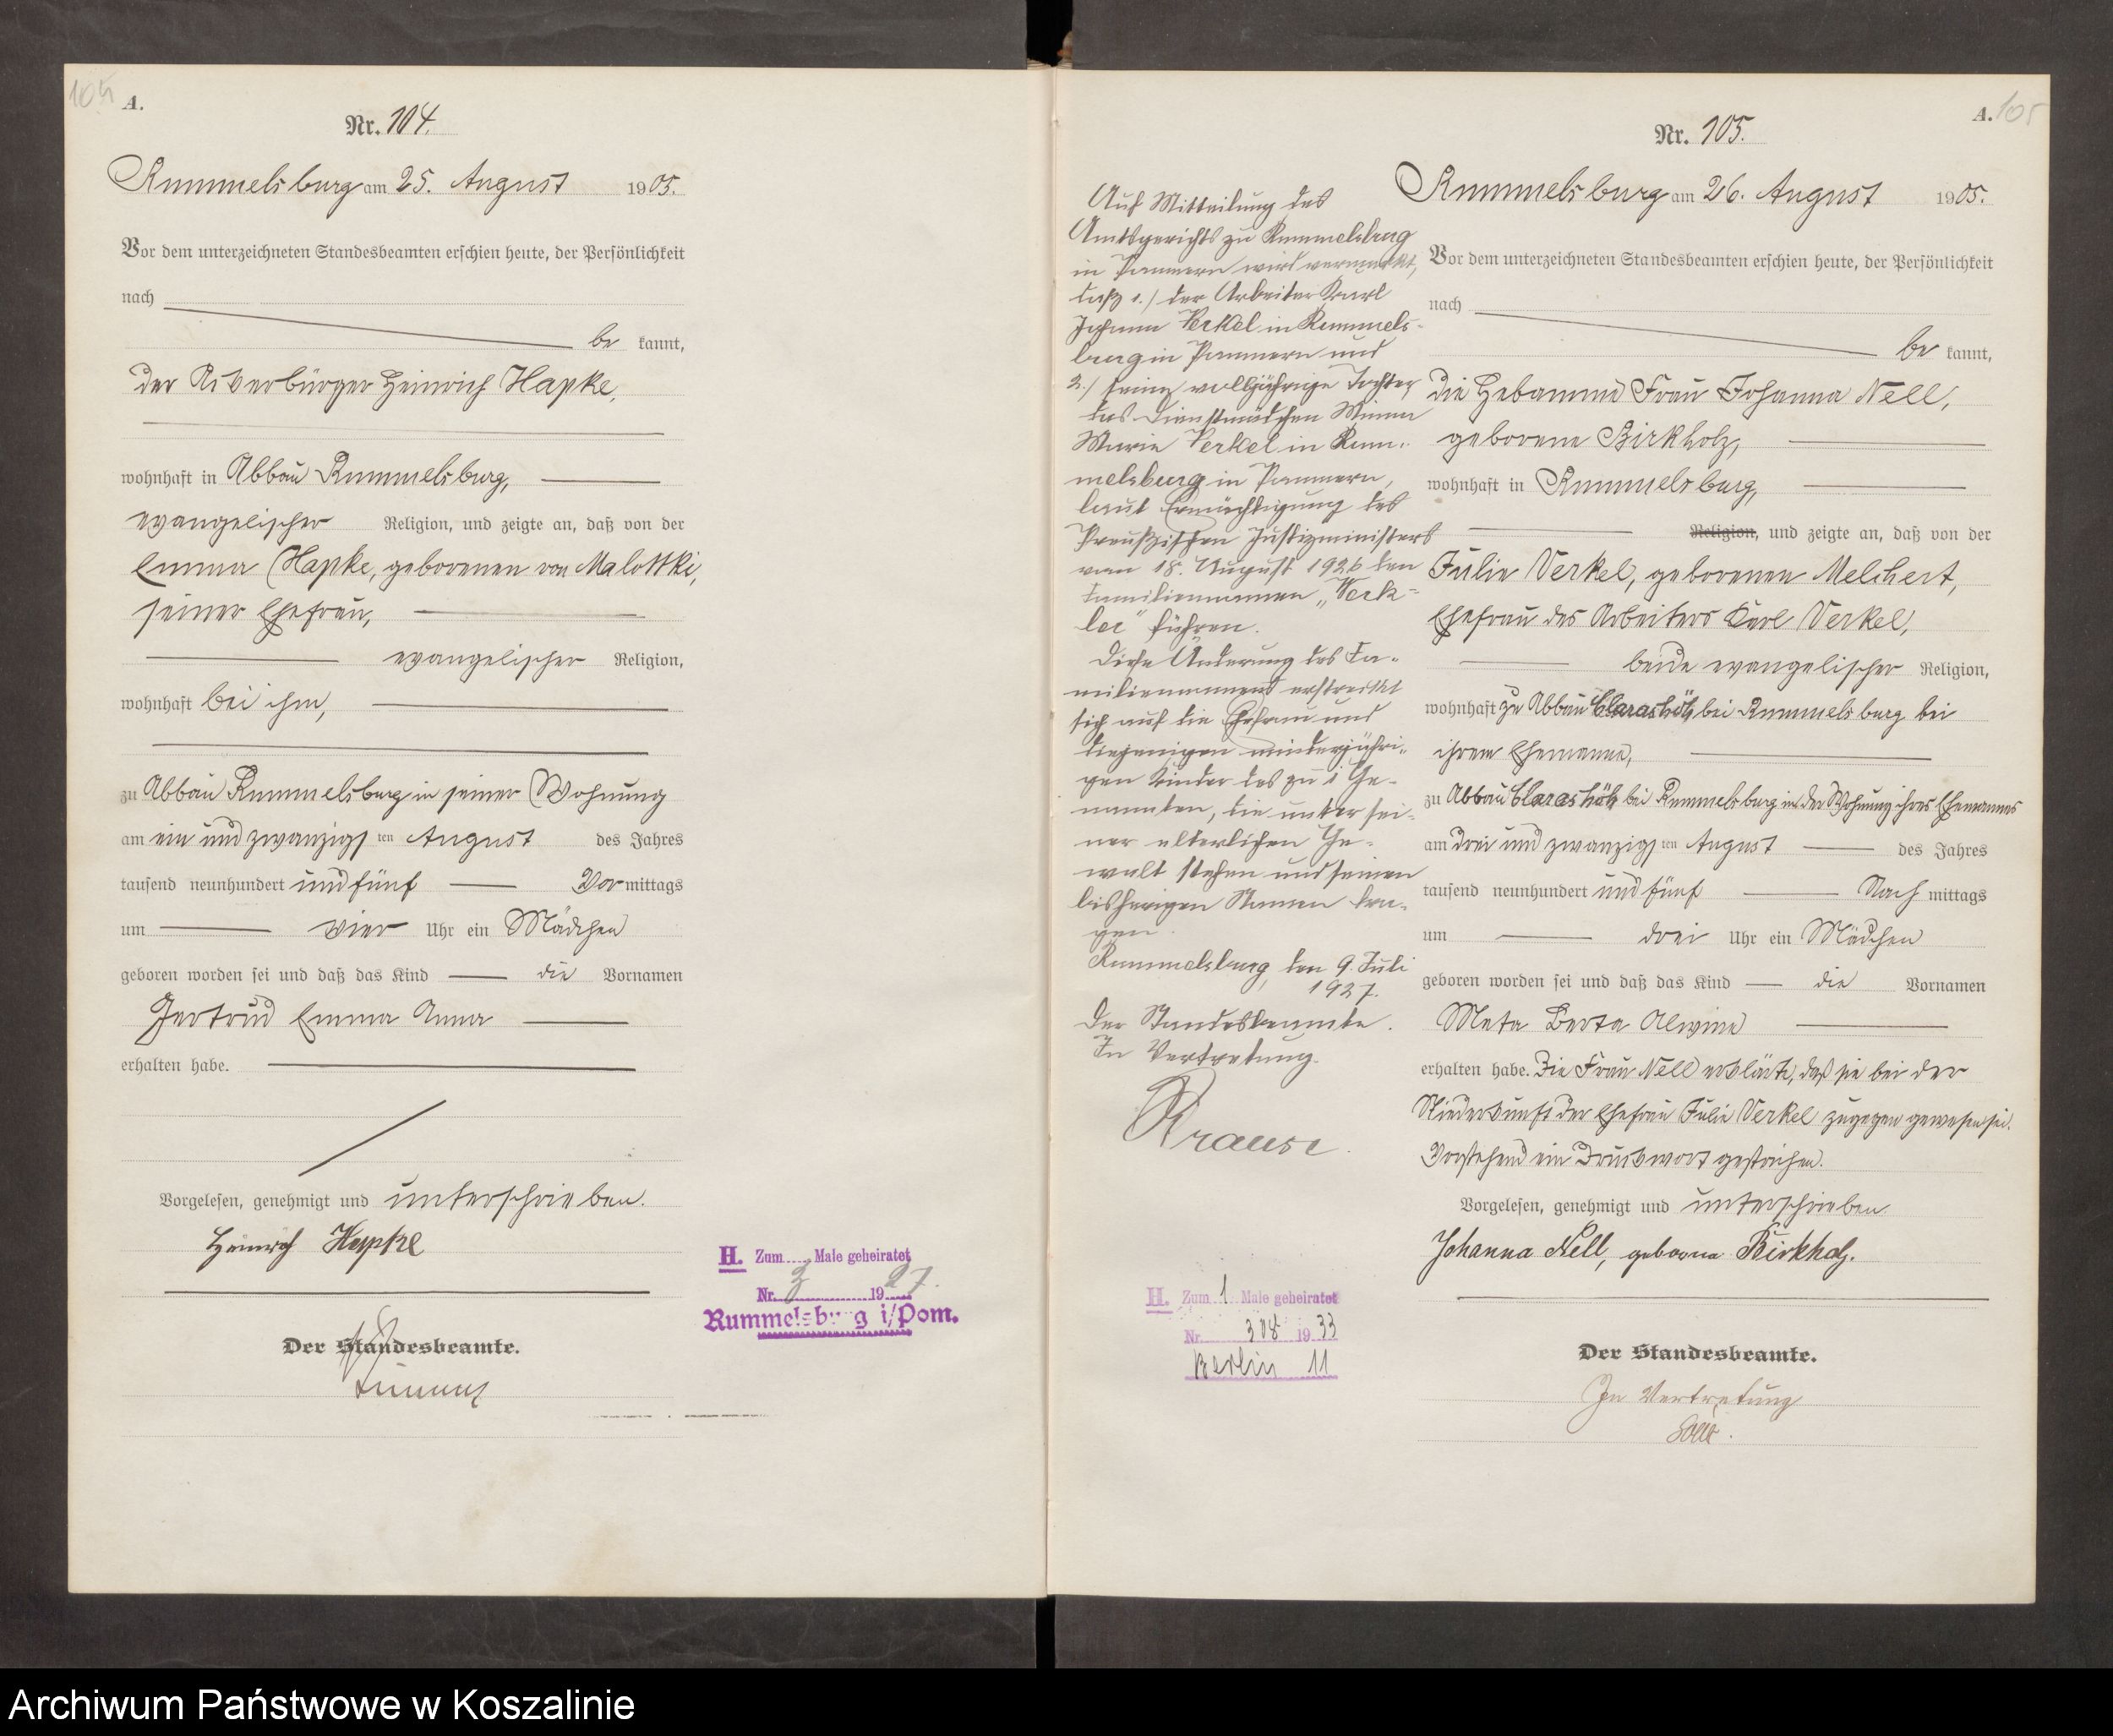 104
A.
Nr. 104.
Rummelsburg am 25. August 1905.
Vor dem unterzeichneten Standesbeamten erschien heute, der Persönlichkeit
nach
be kannt,
der Ackerbürger Heinrich Hapke,
wohnhaft in Abbau Rummelsburg,
evangelischer Religion, und zeigte an, daß von der
Emma Hapke, geborenen von Malottki,
seiner Ehefrau,
evangelischer Religion,
wohnhaft bei ihm,
zu Abbau Rummelsburg in seiner Wohnung
am ein und zwanzigsten August des Jahres
tausend neunhundert und fünf Vor mittags
um vier Uhr ein Mädchen
geboren worden sei und daß das Kind die Vornamen
Gertrud Emma Anna
erhalten habe.
Vorgelesen, genehmigt und unterschrieben.
Heinrich Hapke
Der Standesbeamte.
H. Zum Male geheiratet
Nr. 3 1927.
Rummelsburg i/Pom.
A. 105
Nr. 105.
Rummelsburg am 26. August 1905.
Vor dem unterzeichneten Standesbeamten erschien heute, der Persönlichkeit
nach
be kannt,
die Hebamme Frau Johanna Nell,
geborene Birkholz,
wohnhaft in Rummelsburg,
Religion, und zeigte an, daß von der
Julie Verkel, geborenen Melchert,
Ehefrau des Arbeiters Karl Verkel,
beide evangelischer Religion,
wohnhaft zu Abbau Clarashöh bei Rummelsburg bei
ihrem Ehemanne,
zu Abbau Clarashöh bei Rummelsburg in der Wohnung ihres Ehemannes
am drei und zwanzigsten August des Jahres
tausend neunhundert und fünf Nach mittags
um drei Uhr ein Mädchen
geboren worden sei und daß das Kind die Vornamen
Meta Berta Alwine
erhalten habe. Die Frau Nell erklärte, daß sie bei der
Niederkunft der Ehefrau Julie Verkel zugegen gewesen sei.
Vorstehend ein Druckwort gestrichen.
Vorgelesen, genehmigt und unterschrieben
Johanna Nell, geborne Birkholz.
Der Standesbeamte.
In Vertretung
Auf Mitteilung des
Amtsgerichts zu Rummelsburg
in Pommern wird vermerkt,
daß 1./ der Arbeiter Karl
Johann Verkel in Rummels-
burg in Pommern und
2./ seine volljährige Tochter
das Dienstmädchen Minna
Maria Verkel in Rum-
melsburg in Pommern,
laut Ermächtigung des
Preußischen Justizministers
vom 18. August 1926 den
Familiennamen „Verk-
ler“ führen.
Diese Änderung des Fa-
miliennamens erstreckt
sich auf die Ehefrau und
diejenigen minderjähri-
gen Kinder des zu 1 Ge-
nannten, die unter sei-
ner elterlichen Ge-
walt stehen und seinen
bisherigen Namen tra-
gen.
Rummelsburg, den 9. Juli
1927.
Der Standesbeamte.
In Vertretung.
Krause.
H. Zum 1 Male geheiratet
Nr. 308 1933
Berlin 11
Archiwum Państwowe w Koszalinie